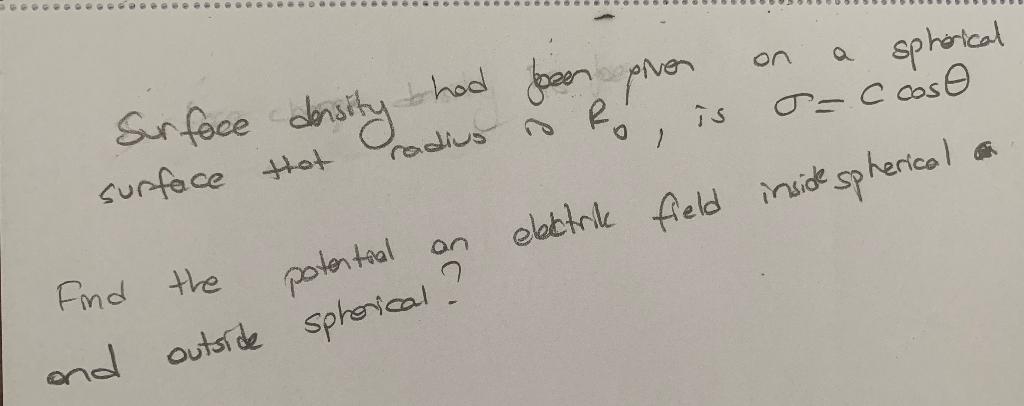 Surface density had been given on a spherical
surface that radius is R₀, is σ = C cosθ
Find the potential an elektrik field inside spherical
and outside spherical?